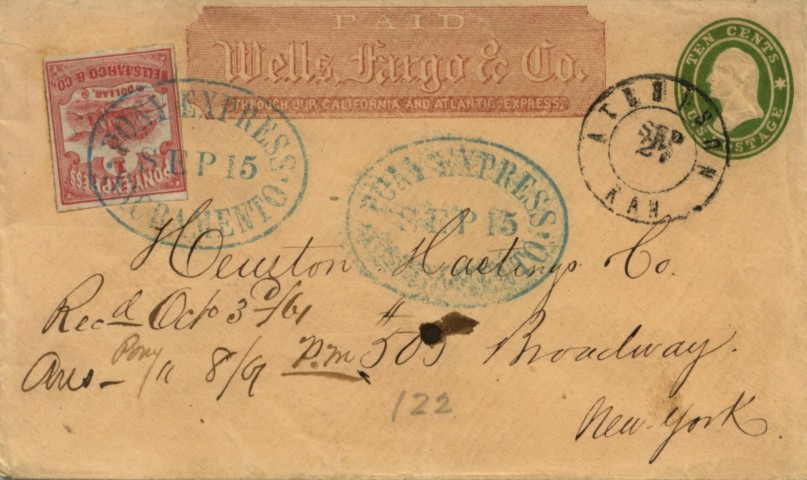 PAID
Wells, Fargo & Co.
THROUGH OUR CALIFORNIA AND ATLANTIC EXPRESS.
TEN CENTS
U.S. POSTAGE
WELLS, FARGO & CO.
DOLLAR
PONY EXPRESS
PONY EXPRESS.
SEP 15
SACRAMENTO
PONY EXPRESS.
SEP 15
SACRAMENTO
ATCHISON
SEP
KAN
Heuston Hastings Co.
Recd Oct 3d/61
# 505 Broadway.
Ans - Pony " 8/61 P.m
New-York
122